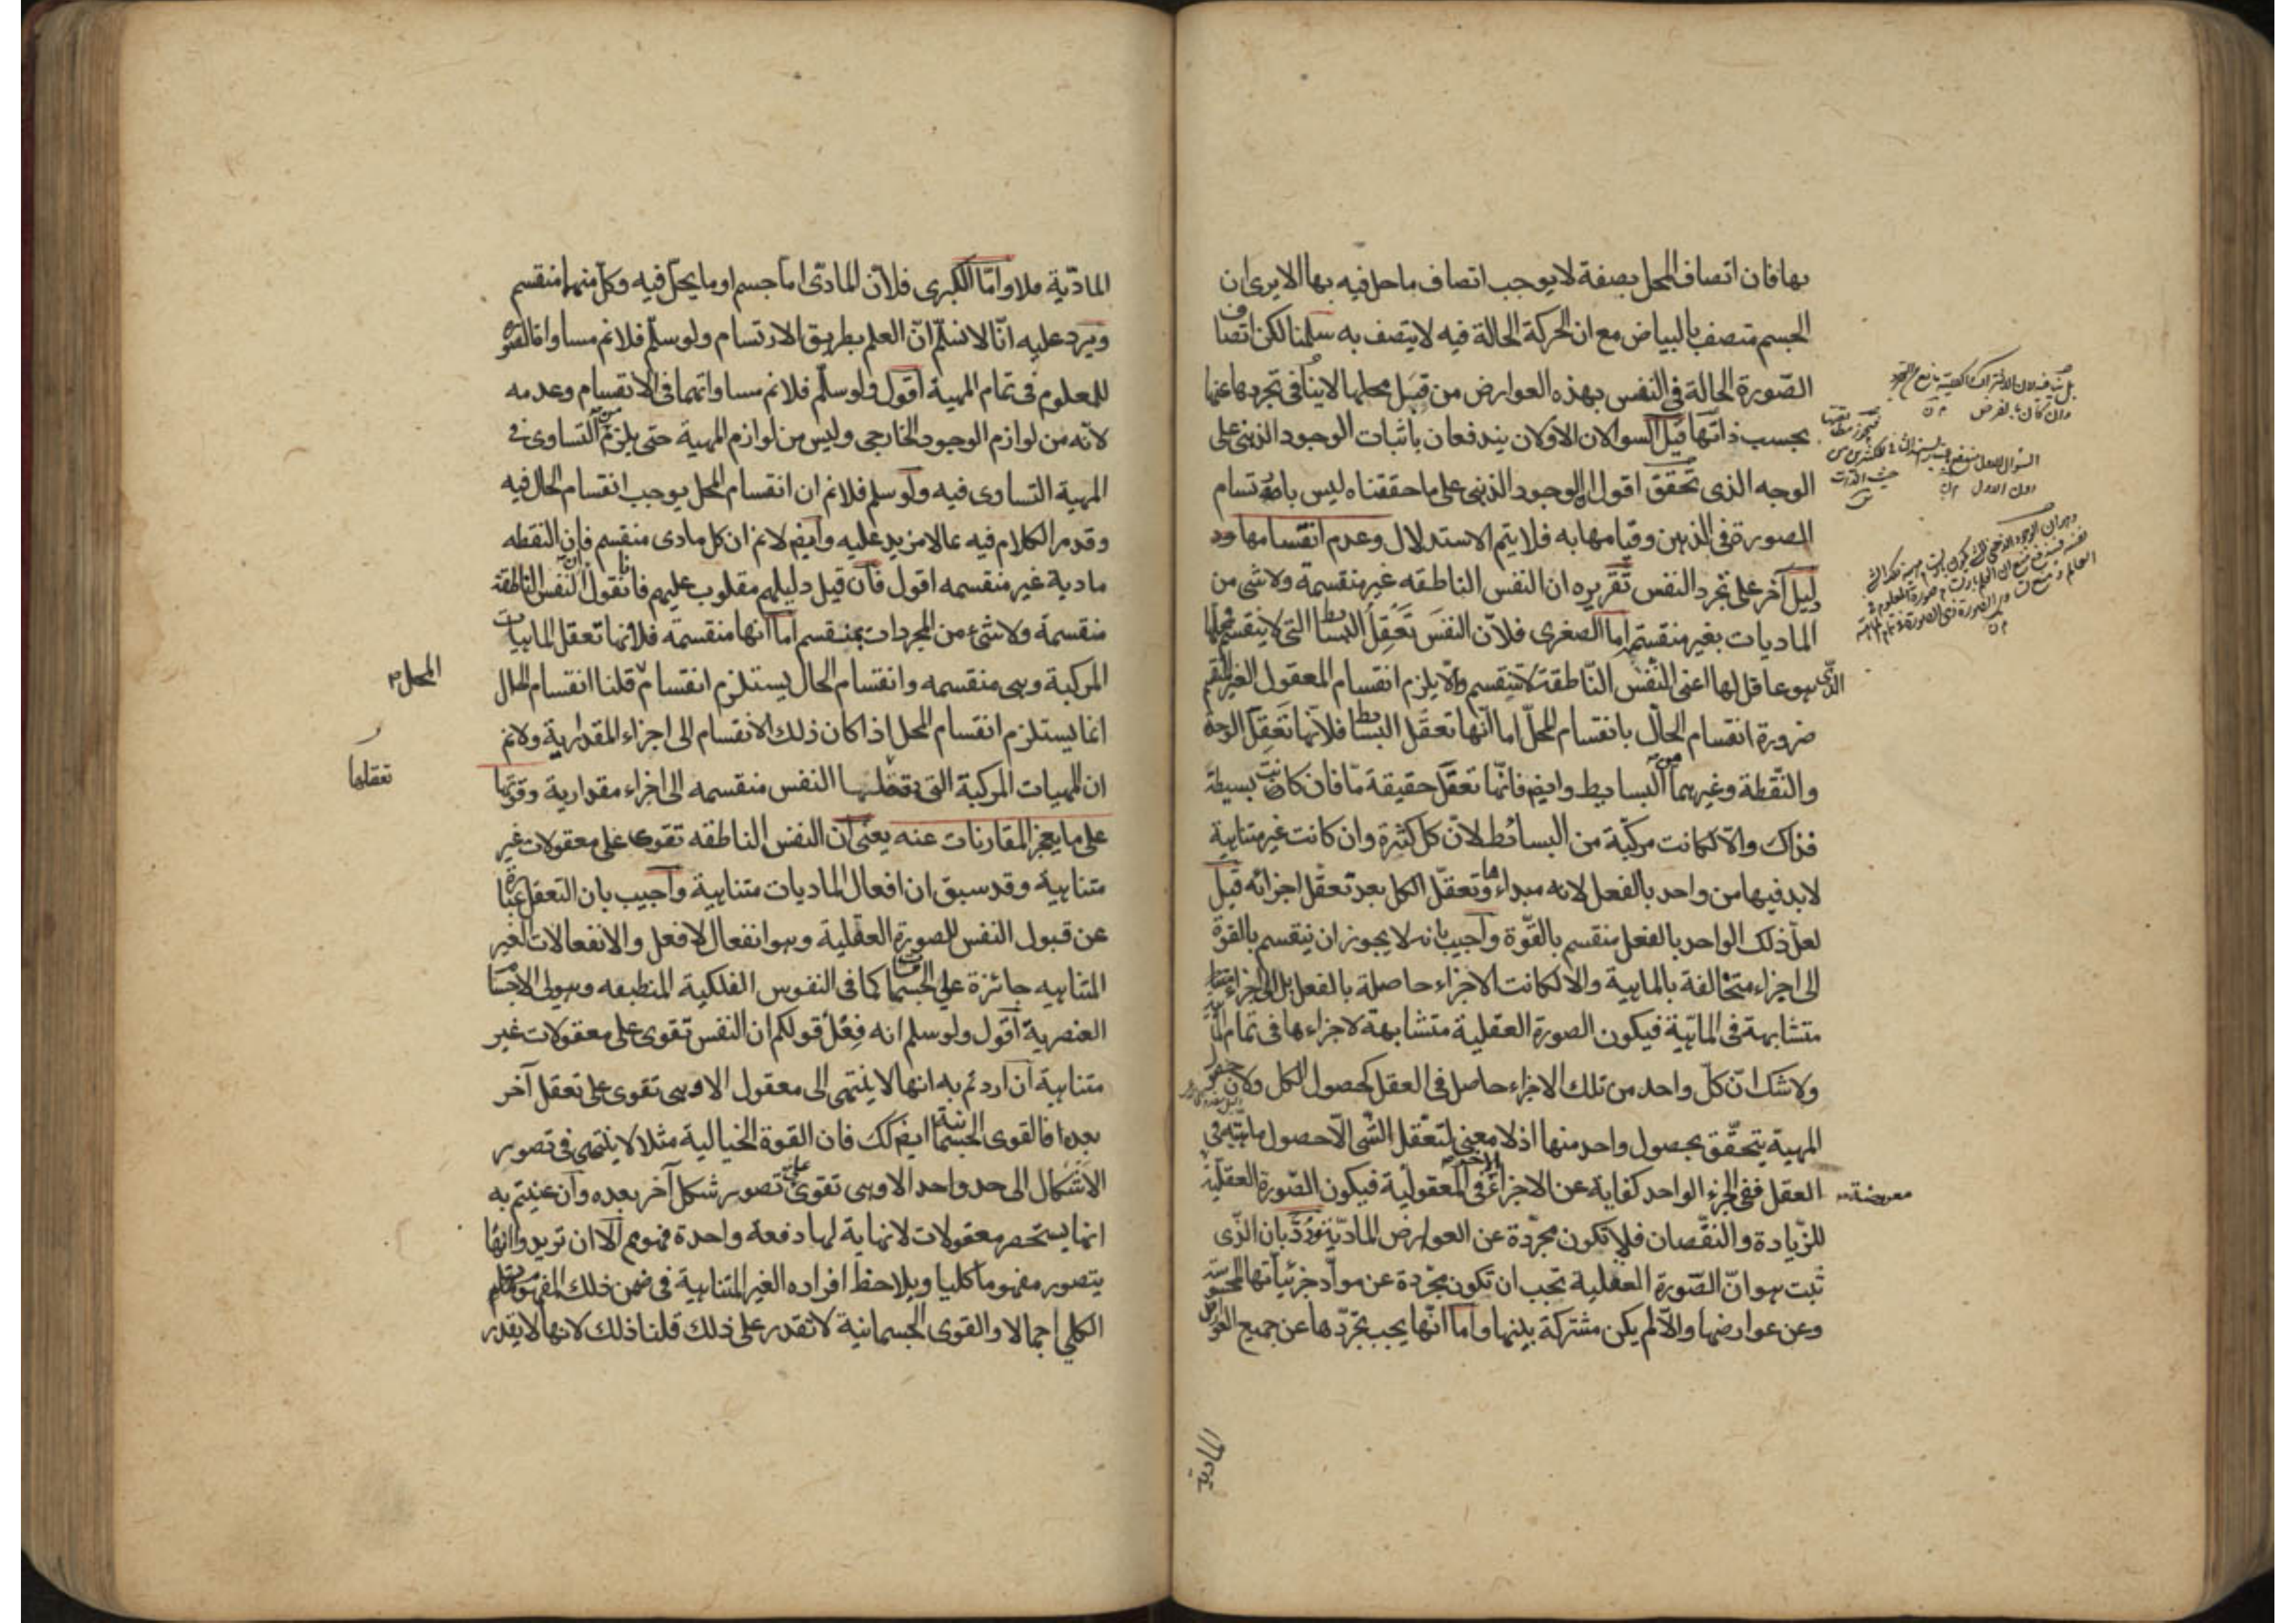 بها فان اتصاف المحل بصفة لا يوجب اتصاف ما حل فيه بها الا يرى ان
الجسم متصف بالبياض مع ان الحركة الحالة فيه لا يتصف به سلمنا لكن اتصاف
الصّورة الحالة فى النفس بهذه العوارض من قبَل محلها لا ينافى تجردها عنها
بحسب ذاتها قيل السوالان الاولان يندفعان باثبات الوجود الذهنى على
الوجه الذى تحقق اقول الوجود الذهنى على ما حققناه ليس بارتسام
الصورة فى الذهن وقيامها به فلا يتم الاستدلال وعدم انقسامها د
ليل آخر على تجرد النفس تقريره ان النفس الناطقه غير منقسمة ولا شى من
الماديات بغير منقسم اما الصغرى فلانّ النفسَ تَعَقِلُ البسائط التى لا ينقسم فمحلها
الذى هو عاقل لها اعنى النفس النّاطقة لا تنقسم والّا يلزم انقسام المعقول الغير المنقسم
ضرورة انقسام الحالّ بانقسام المحلّ اما انّها تعقل البسائط فلانها تَعقِلَ الوحدة
والنّقطة وغيرهما من البسايط وايضا فانّها تعقل حقيقة مّا فان كانت بسيطة
فذاك والّا لكانت مركّبة من البسائط لانّ كل كثرة وان كانت غير متناهية
لا بد فيها من واحد بالفعل لانه مبداءها وتعقّل الكل بعد تعقل اجزائه قيل
لعلّ ذلك الواحد بالفعل منقسم بالقوّة واجيب بانه لا يجوز ان ينقسم بالقوة
الى اجزاء متخالفة بالماهية والا لكانت الاجزاء حاصلة بالفعل بل الى اجزاء
متشابهة فى الماهّية فيكون الصورة العقلية متشابهة لاجزاءها فى تمام
ولا شك انّ كلّ واحد من تلك الاجزاء حاصل فى العقل كحصول الكل ولان
المهية يتحقّق بحصول واحد منها اذ لا معنى لتعقل الشّى الّا حصول ماهيته فى
العقل ففى الجزء الواحد كفاية عن الاجزاء الاخر فى المعقولية فيكون الصّورة العقليّة
معروضة
للزّيادة والنقّصان فلا تكون مجرّدة عن العوارض المادّية ورُدّ بان الّذى
ثبت هو انّ الصّورة العقلية يجب ان تكون مجرّدة عن موادّ جزئياتها المحسوسة
وعن عوارضها والّا لم يكن مشتركة بينها واما انّها يجب تجرّدها عن جميع العوارض
المادية
المادّية فلا وامّا الكبرى فلانّ المادّى اما جسم او ما يحلّ فيه وكلّ منهما منقسم
ويرد عليه انّا لا نسلّم انّ العلم بطريق الارتسام ولو سلّم فلا نم مساواة الصورة
للمعلوم فى تمام المهية اقول ولو سلّم فلا نم مساواتهما فى الانقسام وعدمه
لانّه من لوازم الوجود الخارجى وليس من لوازم المهية حتى يلزم من التساوى فى
المهية التساوى فيه ولو سلم فلا نم ان انقسام المحل يوجب انقسام الحال فيه
وقد مر الكلام فيه بما لا مزيد عليه وايضا لا نم ان كل مادى منقسم فان النقطه
مادية غير منقسمه اقول فان قيل دليلهم مقلوب عليهم فانا نقول ان النفس الناطقة
منقسمة ولا شئ من المجردات بمنقسم اما انها منقسمة فلانها تعقل الماهيات
المركبة وهى منقسمه وانقسام الحال يستلزم انقسام المحل قلنا انقسام الحال
انما يستلزم انقسام المحل اذا كان ذلك الانقسام الى اجزاء المقدارية ولا نم
ان المهيات المركبة التى تعقلها النفس منقسمه الى اجزاء مقدارية وقوتها
على ما يعجز المقارنات عنه يعنى ان النفس الناطقه تقوى على معقولات غير
متناهية وقد سبق ان افعال الماديات متناهية واجيب بان التعقل عبارة
عن قبول النفس للصورة العقلية وهو انفعال لا فعل والانفعالات الغير
المتناهيه جائزة على الجسمانيات كما فى النفوس الفلكية المنطبعه وهيولى الاجسام
العنصرية اقول ولو سلم انه فِعْل قولكم ان النفس تقوى على معقولات غير
متناهية ان اردتم به انها لا ينتهى الى معقول الا وهى تقوى على تعقل آخر
بعده فالقوى الجسمانية ايضا كك فان القوة الخيالية مثلا لا ينتهى فى تصور
الاشكال الى حد واحد الا وهى تقوى على تصور شكل آخر بعده وان عنيتم به
انها يستحضر معقولات لا نهاية لها دفعة واحدة فهو مم الا ان تريدوا انها
يتصور مفهوما كليا ويلاحظ افراده الغير المتناهية فى ضمن ذلك المفهوم
الكلى اجمالا والقوى الجسمانية لا تقدر على ذلك قلنا ذلك لانها لا يقدر